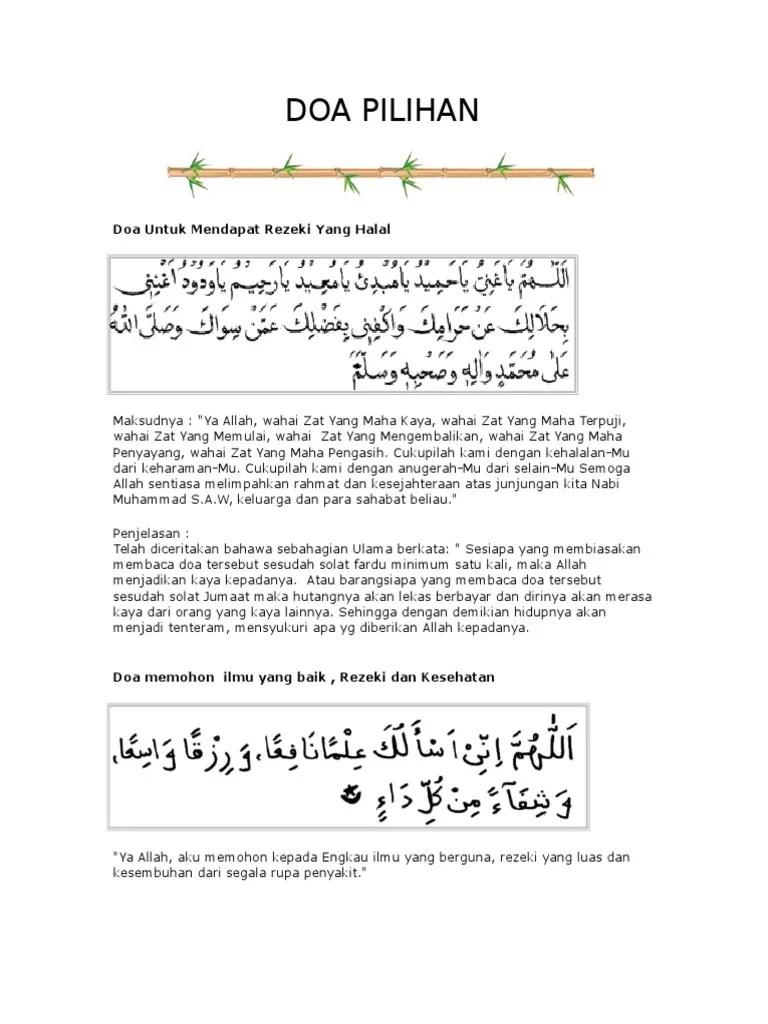 DOA PILIHAN
Doa Untuk Mendapat Rezeki Yang Halal
اَللّٰهُمَّ يَاغَنِيُّ يَاحَمِيْدُ يَامُبْدِئُ يَامُعِيْدُ يَارَحِيْمُ يَاوَدُوْدُ اَغْنِنِيْ
بِحَلَالِكَ عَنْ حَرَامِكَ وَاكْفِنِيْ بِفَضْلِكَ عَمَّنْ سِوَاكَ وَصَلَّى اللهُ
عَلَى مُحَمَّدٍ وَاٰلِهِ وَصَحْبِهِ وَسَلَّمَ
Maksudnya : "Ya Allah, wahai Zat Yang Maha Kaya, wahai Zat Yang Maha Terpuji,
wahai Zat Yang Memulai, wahai  Zat Yang Mengembalikan, wahai Zat Yang Maha
Penyayang, wahai Zat Yang Maha Pengasih. Cukupilah kami dengan kehalalan-Mu
dari keharaman-Mu. Cukupilah kami dengan anugerah-Mu dari selain-Mu Semoga
Allah sentiasa melimpahkan rahmat dan kesejahteraan atas junjungan kita Nabi
Muhammad S.A.W, keluarga dan para sahabat beliau."
Penjelasan :
Telah diceritakan bahawa sebahagian Ulama berkata: " Sesiapa yang membiasakan
membaca doa tersebut sesudah solat fardu minimum satu kali, maka Allah
menjadikan kaya kepadanya.  Atau barangsiapa yang membaca doa tersebut
sesudah solat Jumaat maka hutangnya akan lekas berbayar dan dirinya akan merasa
kaya dari orang yang kaya lainnya. Sehingga dengan demikian hidupnya akan
menjadi tenteram, mensyukuri apa yg diberikan Allah kepadanya.
Doa memohon  ilmu yang baik , Rezeki dan Kesehatan
اَللّٰهُمَّ اِنِّيْ اَسْأَلُكَ عِلْمًا نَافِعًا، وَرِزْقًا وَاسِعًا،
وَشِفَآءً مِنْ كُلِّ دَاءٍ
"Ya Allah, aku memohon kepada Engkau ilmu yang berguna, rezeki yang luas dan
kesembuhan dari segala rupa penyakit."